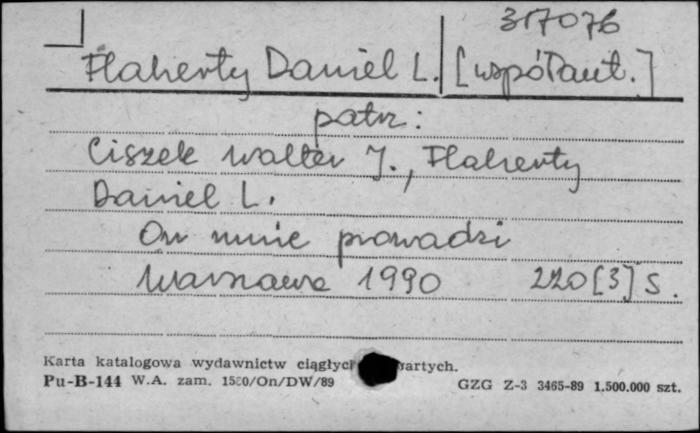 317076
Flaherty Daniel L. [współaut.]
patrz:
Ciszek Walter J., Flaherty
Daniel L.
On mnie prowadzi
Warszawa 1990 220[3] s.
Karta katalogowa wydawnictw ciągłyc artych.
Pu-B-144 W.A. zam. 1580/On/DW/89 GZG Z-3 3465-89 1.500.000 szt.